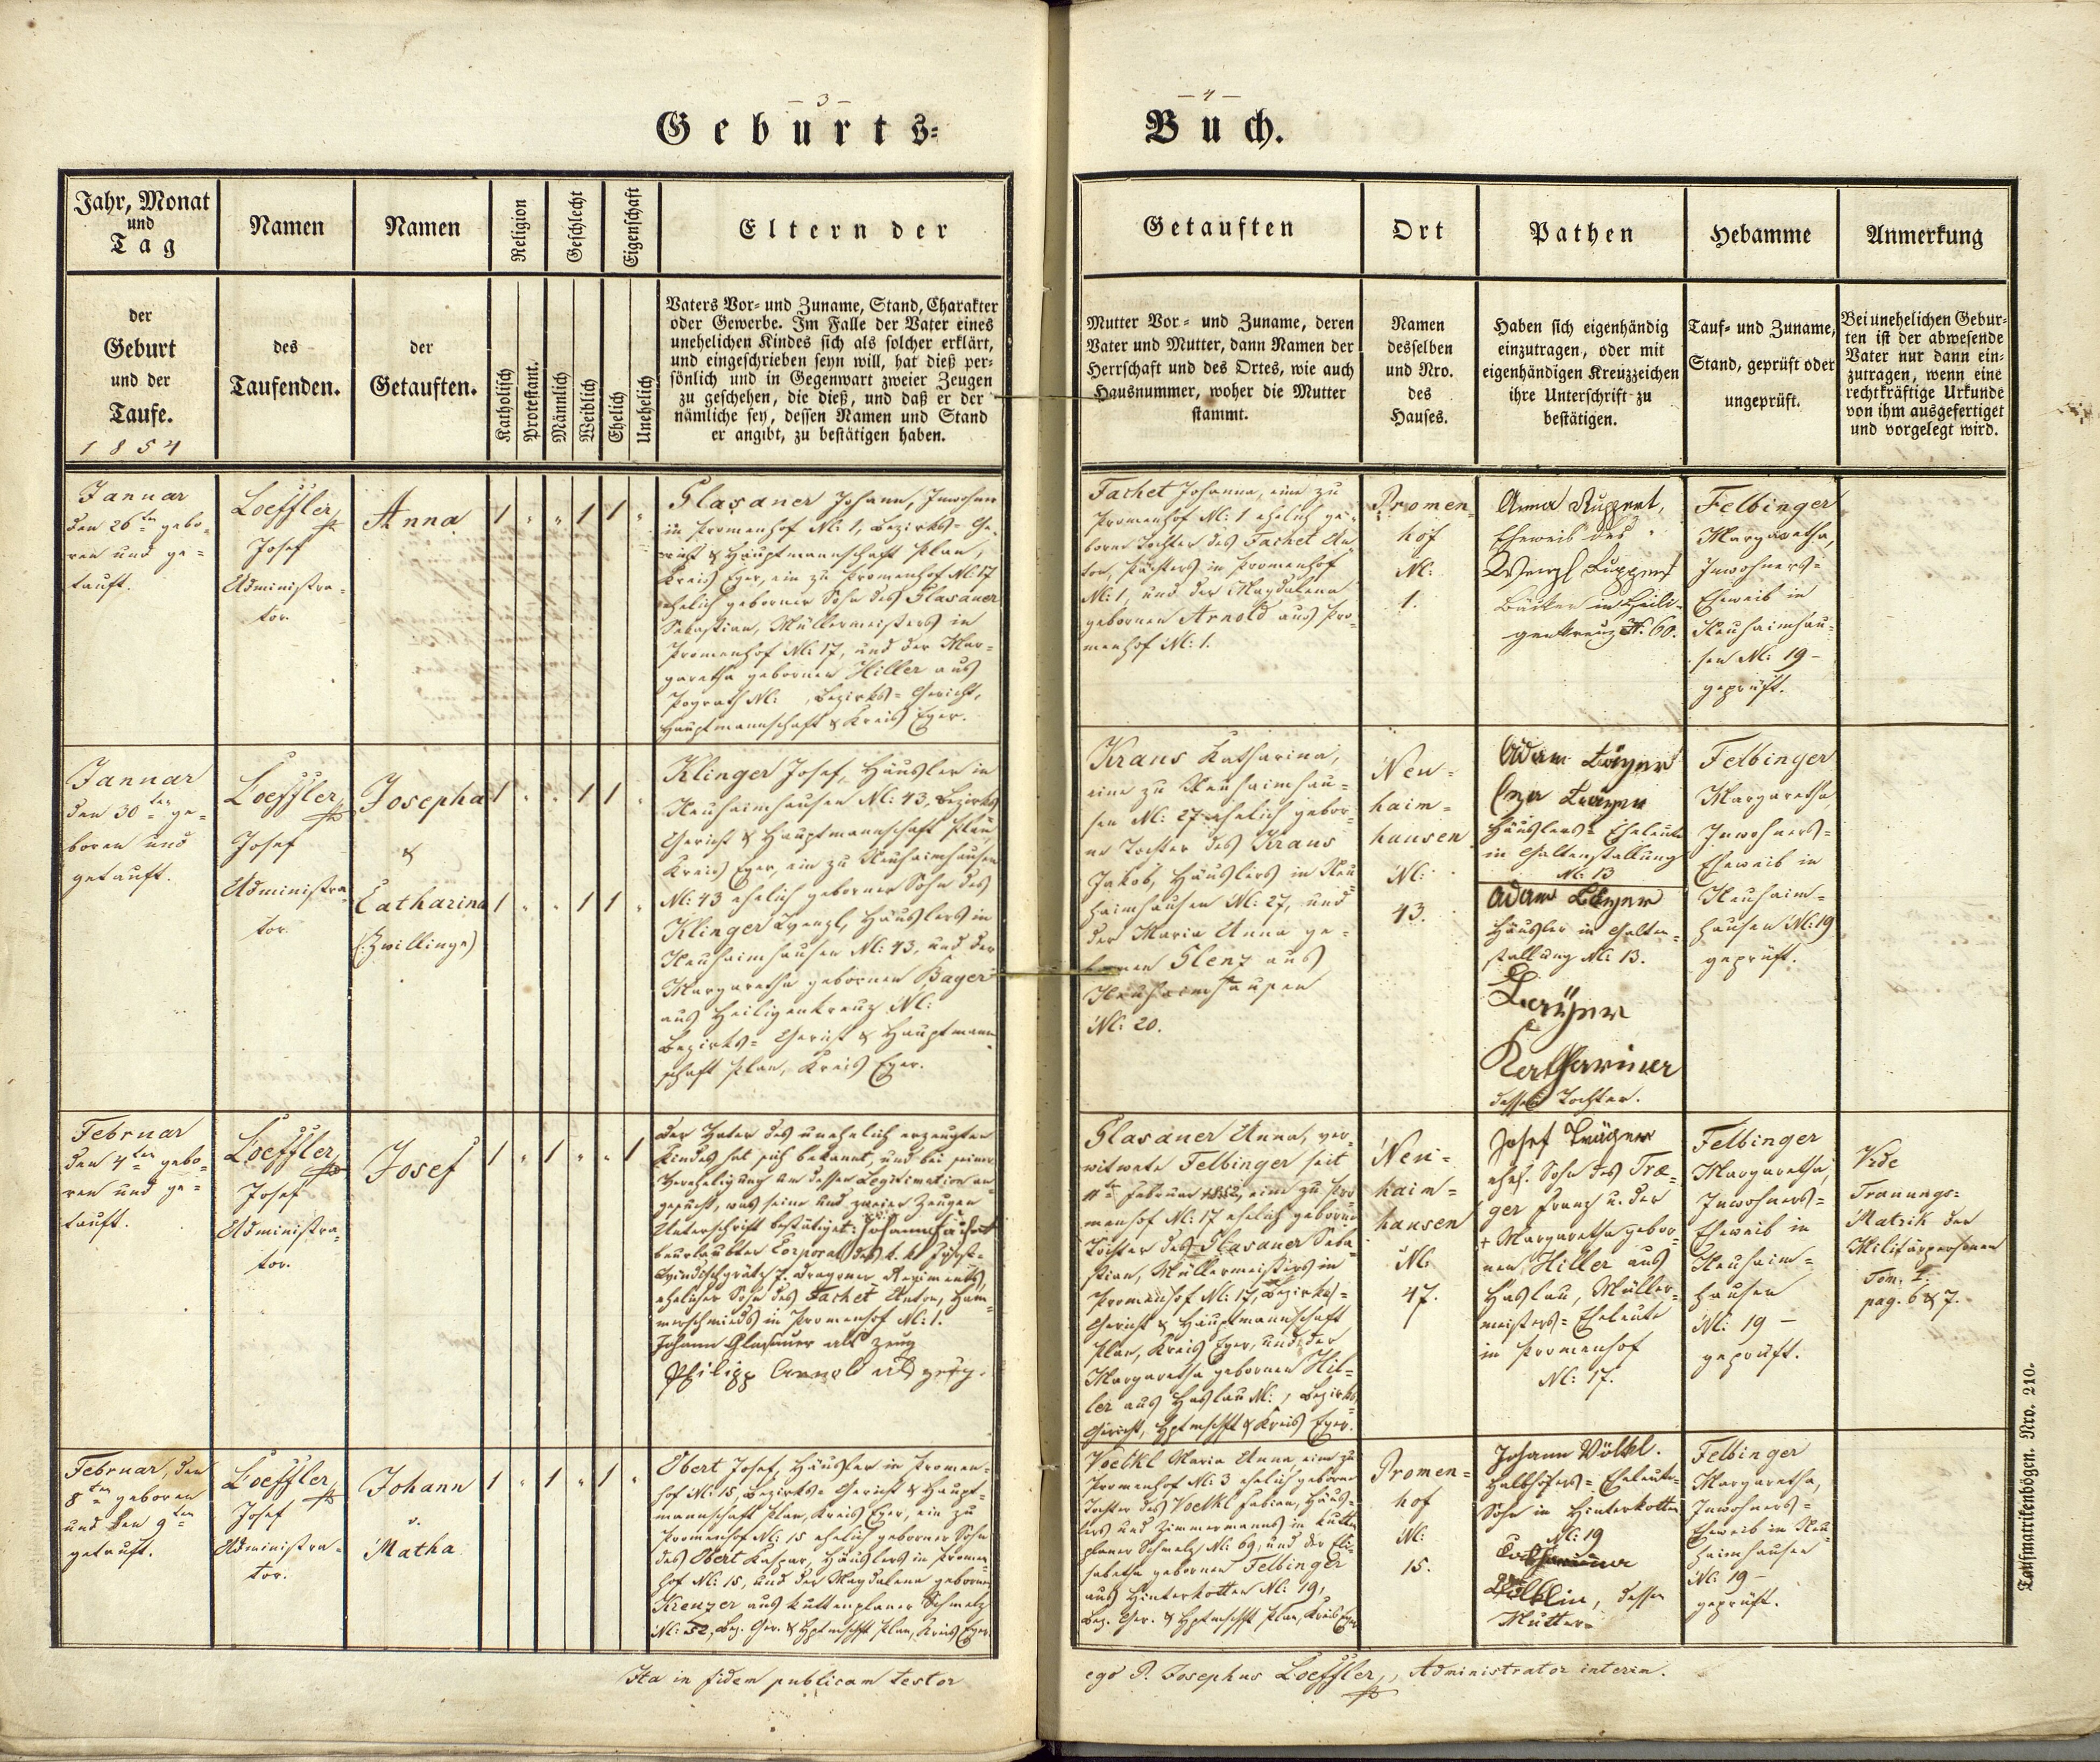 – 3 –
Geburts=
Jahr, Monat
und
Tag
Namen
Namen
Religion
Geschlecht
Eigenschaft
Eltern der
der
Geburt
und der
Taufe.
1854
des
Taufenden.
der
Getauften.
Katholisch
Protestant.
Männlich
Weiblich
Ehelich
Unehelich
Vaters Vor= und Zuname, Stand, Charakter
oder Gewerbe. Im Falle der Vater eines
unehelichen Kindes sich als solcher erklärt,
und eingeschrieben seyn will, hat dieß per=
sönlich und in Gegenwart zweier Zeugen
zu geschehen, die dieß, und daß er der
nämliche sey, dessen Namen und Stand
er angibt, zu bestätigen haben.
Januar
den 26ten gebo=
ren und ge=
tauft.
Loeffler
Josef
Administra=
tor.
Anna
1 " " 1 1 "
Glasauer Johann, Inwohner
in Promenhof N: 1, Bezirks= Ge=
richt & Hauptmannschaft Plan,
Kreis Eger, ein zu Promenhof N: 17
ehelich geborner Sohn des Glasauer
Sebastian, Müllermeisters in
Promenhof N: 17, und der Mar=
garetha gebornen Hiller aus
Pograth N: , Bezirks= Gericht,
Hauptmannschaft & Kreis Eger.
Januar
den 30ten ge=
boren und
getauft.
Loeffler
Josef
Administra=
tor.
Josepha
&
Catharina
(:Zwillinge)
1 " " 1 1 "
1 " " 1 1 "
Klinger Josef, Häusler in
Neuhaimhausen N: 43, Bezirks
Gericht & Hauptmannschaft Plan,
Kreis Eger, ein zu Neuhaimhausen
N: 43 ehelich geborner Sohn des
Klinger Wenzl, Häuslers in
Neuhaimhausen N: 43, und der
Margaretha gebornen Bayer
aus Heiligenkreuz N:
Bezirks= Gericht & Hauptmann=
schaft Plan, Kreis Eger.
Februar
den 4ten gebo=
ren und ge=
tauft.
Loeffler
Josef
Administra=
tor.
Josef
1 " 1 " " 1
Der Vater des unehelich erzeugten
Kindes hat sich bekannt, und bei seiner
Verehelichung um dessen Legitimation an=
gesucht, was seine und zweier Zeugen
Unterschrift bestätiget: Johann Fachet
beurlaubter Corporal des k. k. Fürst=
Windischgrätz 7. Dragoner Regiments,
ehelicher Sohn des Fachet Anton, Ham=
merschmieds in Promenhof N: 1.
Johann Glasauer als Zeug
Philipp Arnold als Zeug.
Februar, den
8ten geboren
und den 9ten
getauft.
Loeffler
Josef
Administra=
tor.
Johann
v.
Matha
1 " 1 " 1 "
Obert Josef, Häusler in Promen=
hof N: 15, Bezirks= Gericht & Haupt=
mannschaft Plan, Kreis Eger, ein zu
Promenhof N: 15 ehelich geborner Sohn
des Obert Kaspar, Häuslers in Promen=
hof N: 15, und der Magdalena gebornen
Kreuzer aus Kuttenplaner Schmelz
N: 52, Bez. Ger. & Hptmschft Plan, Kreis Eger.
Ita in fidem publicam testor
– 4 –
Buch.
Getauften
Ort
Pathen
Hebamme
Anmerkung
Mutter Vor= und Zuname, deren
Vater und Mutter, dann Namen der
Herrschaft und des Ortes, wie auch
Hausnummer, woher die Mutter
stammt.
Namen
desselben
und Nro.
des
Hauses.
Haben sich eigenhändig
einzutragen, oder mit
eigenhändigen Kreuzzeichen
ihre Unterschrift zu
bestätigen.
Tauf= und Zuname,
Stand, geprüft oder
ungeprüft.
Bei unehelichen Gebur=
ten ist der abwesende
Vater nur dann ein=
zutragen, wenn eine
rechtkräftige Urkunde
von ihm ausgefertiget
und vorgelegt wird.
Fachet Johanna, eine zu
Promenhof N: 1 ehelich ge=
borne Tochter des Fachet An=
ton, Pächters in Promenhof
N: 1, und der Magdalena
gebornen Arnold aus Pro=
menhof N: 1.
Promen=
hof
N:
1.
Anna Ruppert,
Eheweib des
Wenzl Ruppert
Bäcker in Heili=
genkreuz N. 60.
Felbinger
Margaretha,
Inwohners=
Eheweib in
Neuhaimhau=
sen N: 19 –
geprüft.
Kraus Katharina,
eine zu Neuhaimhau=
sen N: 27 ehelich gebor=
ne Tochter des Kraus
Jakob, Häuslers in Neu=
haimhausen N: 27, und
der Maria Anna ge=
bornen Glenz aus
Neuhaimhausen
N: 20.
Neu=
haim=
hausen
N:
43.
Adam
Häuslers= Eheleute
in Galtenstallung
N: 13
Adam
Häusler in Galten=
stallung N: 13.
Katharina
dessen Tochter.
Felbinger
Margaretha
Inwohners=
Eheweib in
Neuhaim=
hausen N: 19
geprüft.
Glasauer Anna, ver=
witwete Felbinger seit
11ten Februar 1852, eine zu Pro=
menhof N: 17 ehelich geborne
Tochter des Glasauer Seba=
stian, Müllermeisters in
Promenhof N: 17, Bezirks=
Gericht & Hauptmannschaft
Plan, Kreis Eger, und der
Margaretha gebornen Hil=
ler aus Haslau N: , Bezirks
Gericht, Hptmschft & Kreis Eger.
Neu=
haim=
hausen
N:
47.
Josef Träger
ehel. Sohn des Trä=
ger Franz u. der
+ Margaretha gebor=
nen Hiller aus
Haslau, Müller=
meisters= Eheleute
in Promenhof
N: 17.
Felbinger
Margaretha,
Inwohners=
Eheweib in
Neuhaim=
hausen
N: 19 –
geprüft.
Vide
Trauungs=
Matrik der
Militärpersonen
Tom. I.
pag. 6 & 7.
Voelkl Maria Anna, eine zu
Promenhof N: 3 ehelich geborne
Tochter des Voelkl Fabian, Häus=
lers und Zimmermanns in Kutten
planer Schmelz N: 69, und der Eli=
sabetha gebornen Felbinger
aus Hinterkotten N: 19,
Bez. Ger. & Hptmschft Plan, Kreis Eger
Promen=
hof
N:
15.
Johann Völkl.
Halbhöfers= Eheleute=
Sohn in Hinterkotten
N: 19
Katharina
Völklin, dessen
Mutter.
Felbinger
Margaretha,
Inwohners=
Eheweib in Neu=
haimhausen
N: 19 –
geprüft.
ego P. Josephus Loeffler, Administrator interim.
Taufmatrikenbögen. Nro. 210.